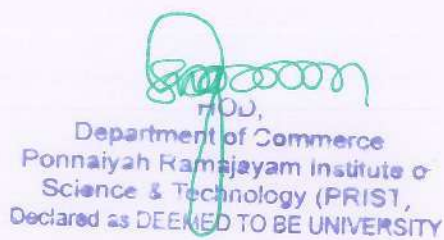 HOD,
Department of Commerce
Ponnaiyah Ramajayam Institute o
Science & Technology (PRIST,
Declared as DEEMED TO BE UNIVERSITY